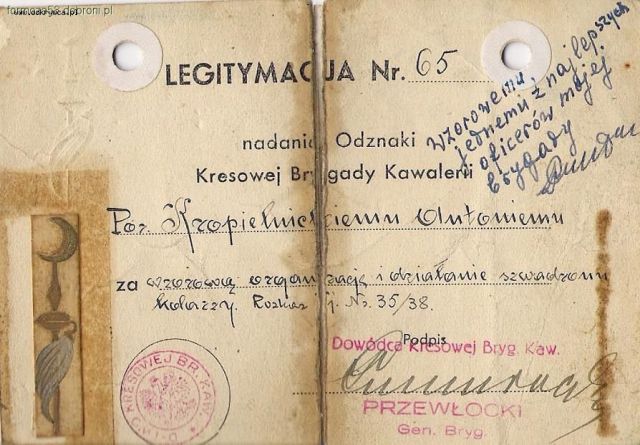 LEGITYMACJA Nr. 65
nadania Odznaki
Kresowej Brygady Kawalerii
Wzorowemu,
jednemu z najlepszych
oficerów mojej
brygady
Por. Kropielnickiemu Antoniemu
za wzorową organizację i działanie szwadronu
kolarzy. Rozkaz Nr. 35/38.
Podpis
Dowódca Kresowej Bryg. Kaw.
PRZEWŁOCKI
Gen. Bryg.
KRESOWEJ BR. KAW.